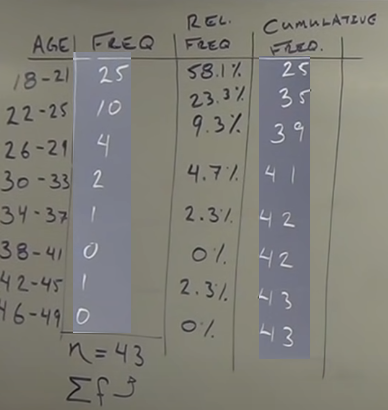 AGE FREQ REL. FREQ CUMULATIVE FREQ.
18-21 25 58.1% 25
22-25 10 23.3% 35
26-29 4 9.3% 39
30-33 2 4.7% 41
34-37 1 2.3% 42
38-41 0 0% 42
42-45 1 2.3% 43
46-49 0 0% 43
n = 43
Σf